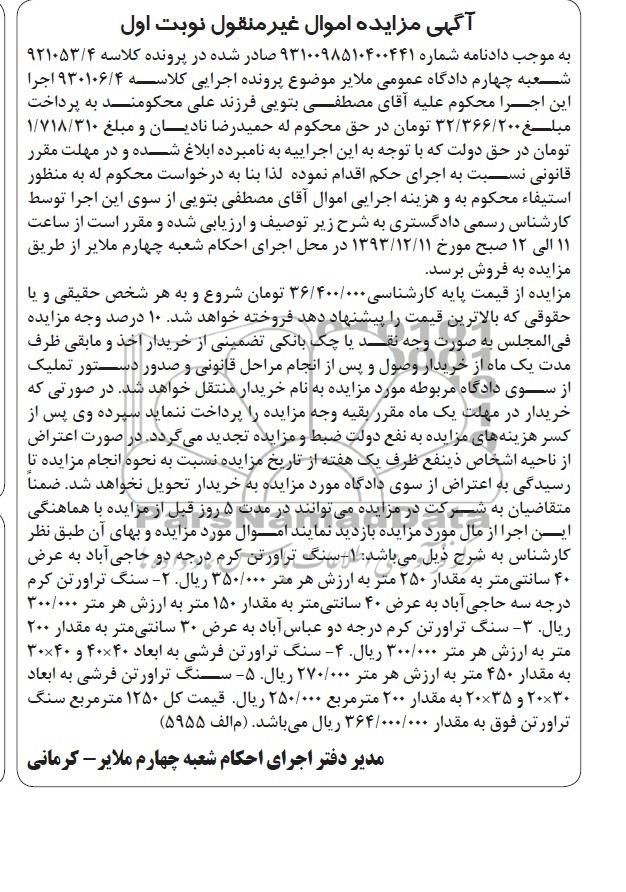 آگهی مزایده اموال غیرمنقول نوبت اول
به موجب دادنامه شماره ۹۳۱۰۰۹۸۵۱۰۴۰۰۴۴۱ صادر شده در پرونده کلاسه ۹۲۱۰۵۳/۴
شعبه چهارم دادگاه عمومی ملایر موضوع پرونده اجرایی کلاسه ۹۳۰۱۰۶/۴ اجرا
این اجرا محکوم علیه آقای مصطفی بتویی فرزند علی محکومند به پرداخت
مبلغ ۳۲/۳۶۶/۲۰۰ تومان در حق محکوم له حمیدرضا نادیان و مبلغ ۱/۷۱۸/۳۱۰
تومان در حق دولت که با توجه به این اجراییه به نامبرده ابلاغ شده و در مهلت مقرر
قانونی نسبت به اجرای حکم اقدام نموده لذا بنا به درخواست محکوم له به منظور
استیفاء محکوم به و هزینه اجرایی اموال آقای مصطفی بتویی از سوی این اجرا توسط
کارشناس رسمی دادگستری به شرح زیر توصیف و ارزیابی شده و مقرر است از ساعت
۱۱ الی ۱۲ صبح مورخ ۱۳۹۳/۱۲/۱۱ در محل اجرای احکام شعبه چهارم ملایر از طریق
مزایده به فروش برسد.
مزایده از قیمت پایه کارشناسی ۳۶/۴۰۰/۰۰۰ تومان شروع و به هر شخص حقیقی و یا
حقوقی که بالاترین قیمت را پیشنهاد دهد فروخته خواهد شد. ۱۰ درصد وجه مزایده
فی‌المجلس به صورت وجه نقد یا چک بانکی تضمینی از خریدار اخذ و مابقی ظرف
مدت یک ماه از خریدار وصول و پس از انجام مراحل قانونی و صدور دستور تملیک
از سوی دادگاه مربوطه مورد مزایده به نام خریدار منتقل خواهد شد. در صورتی که
خریدار در مهلت یک ماه مقرر بقیه وجه مزایده را پرداخت ننماید سپرده وی پس از
کسر هزینه‌های مزایده به نفع دولت ضبط و مزایده تجدید می‌گردد. در صورت اعتراض
از ناحیه اشخاص ذینفع ظرف یک هفته از تاریخ مزایده نسبت به نحوه انجام مزایده تا
رسیدگی به اعتراض از سوی دادگاه مورد مزایده به خریدار تحویل نخواهد شد. ضمناً
متقاضیان به شرکت در مزایده می‌توانند در مدت ۵ روز قبل از مزایده با هماهنگی
این اجرا از مال مورد مزایده بازدید نمایند اموال مورد مزایده و بهای آن طبق نظر
کارشناس به شرح ذیل می‌باشد: ۱-سنگ تراورتن کرم درجه دو حاجی‌آباد به عرض
۴۰ سانتی‌متر به مقدار ۲۵۰ متر به ارزش هر متر ۳۵۰/۰۰۰ ریال. ۲- سنگ تراورتن کرم
درجه سه حاجی‌آباد به عرض ۴۰ سانتی‌متر به مقدار ۱۵۰ متر به ارزش هر متر ۳۰۰/۰۰۰
ریال. ۳- سنگ تراورتن کرم درجه دو عباس‌آباد به عرض ۳۰ سانتی‌متر به مقدار ۲۰۰
متر به ارزش هر متر ۳۰۰/۰۰۰ ریال. ۴- سنگ تراورتن فرشی به ابعاد ۴۰×۴۰ و ۴۰×۳۰
به مقدار ۴۵۰ متر به ارزش هر متر ۲۷۰/۰۰۰ ریال. ۵- سنگ تراورتن فرشی به ابعاد
۳۰×۲۰ و ۳۵×۲۰ به مقدار ۲۰۰ مترمربع ۲۵۰/۰۰۰ ریال. قیمت کل ۱۲۵۰ مترمربع سنگ
تراورتن فوق به مقدار ۳۶۴/۰۰۰/۰۰۰ ریال می‌باشد. (م‌الف ۵۹۵۵)
مدیر دفتر اجرای احکام شعبه چهارم ملایر- کرمانی
ParsNamadData